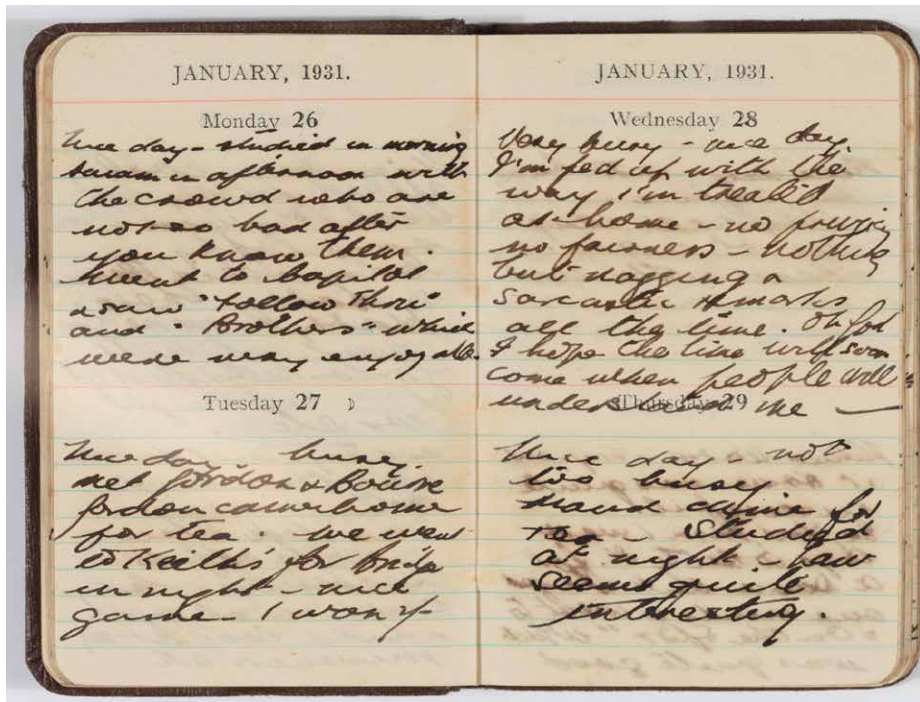 JANUARY, 1931.
Monday 26
Nice day - studied in morning
swam in afternoon with
the crowd who are
not so bad after
you know them.
Went to Capitol
& saw "Follow Thru"
and "Brothers" which
were very enjoyable.
Tuesday 27
Nice day busy.
met Gordon &
Gordon came home
for tea. We went
to Keith's for bridge
in night - nice
game - I won
JANUARY, 1931.
Wednesday 28
Very busy - nice day.
I'm fed up with the
way I'm treated
at home - no
no fairness - nothing
but nagging &
sarcastic remarks
all the time. Oh God
I hope the time will soon
come when people will
understand me —
Thursday 29
Nice day - not
too busy
for
tea - Studied
at night - law
seems quite
interesting.